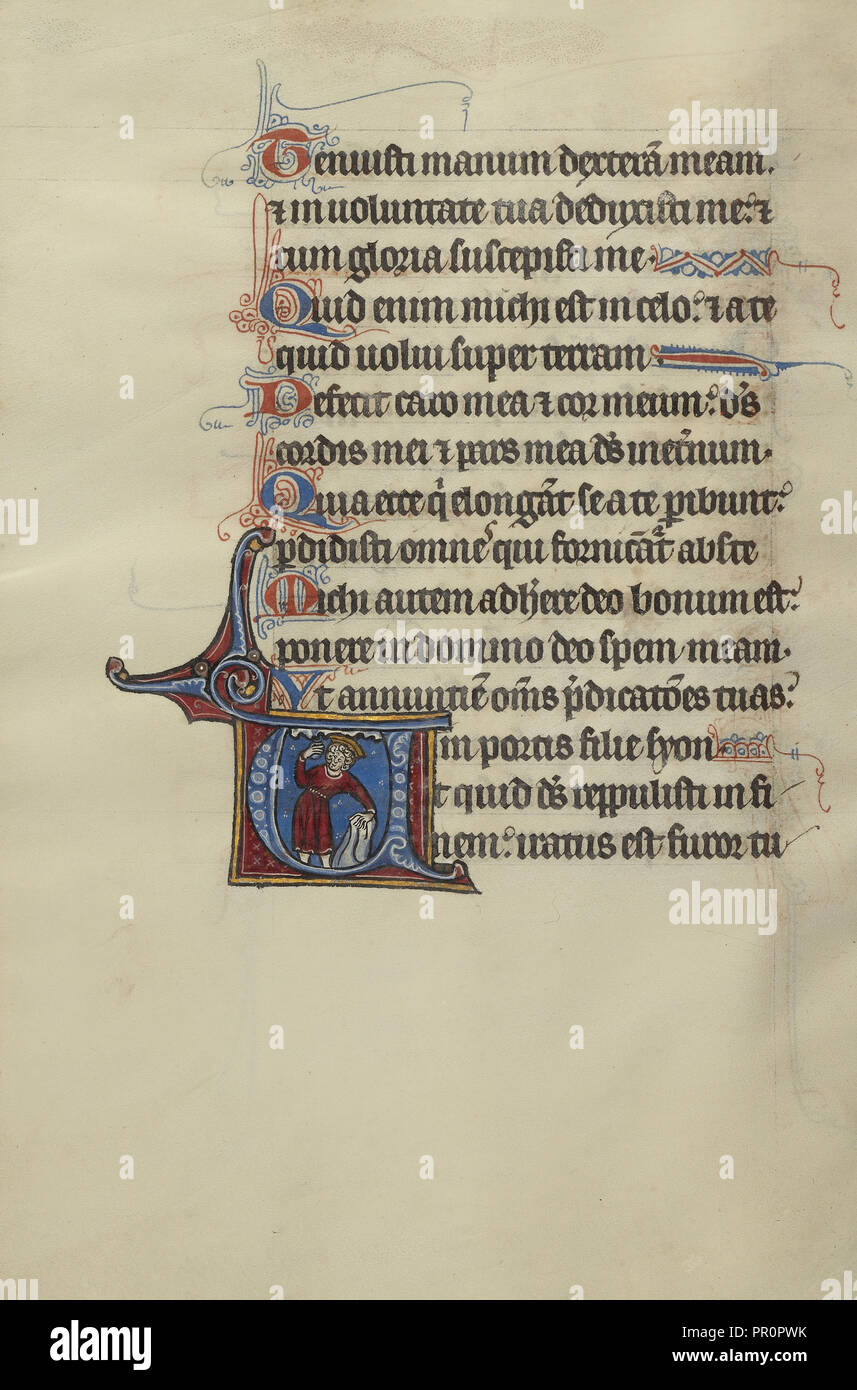 Tenuisti manum dexterā meam.
⁊ in uoluntate tua deduxisti me: ⁊
cum gloria suscepisti me.
Quid enim michi est in celo: ⁊ a te
quid uolui super terram
Defecit caro mea ⁊ cor meum: ds̄
cordis mei ⁊ pars mea ds̄ inet̄num.
Quia ecce q̄ elongāt se a te ꝑibunt:
ꝑdidisti omneˢ qui fornicāt᷑ abs te
Michi autem adh̄ere deo bonum est:
ponere in domino deo spem meam.
Ut annuntiē om̄s p̄dicatōes tuas:
in portis filie syon
Ut quid ds̄ reppulisti in fi
nem: iratus est furor tu
alamy
PR0PWK
www.alamy.com